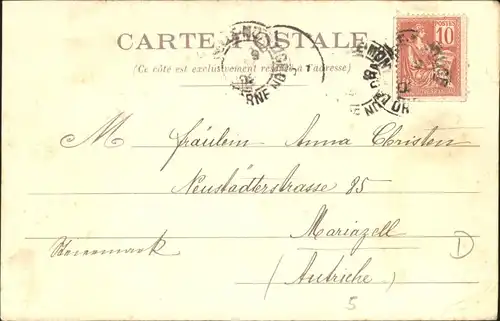 CARTE POSTALE
(Ce côté est exclusivement réservé à l'adresse)
POSTES
10
M Fräulein Anna Christen
Neustädterstrasse 85
Mariazell
Steiermark
(Autriche)
D
5